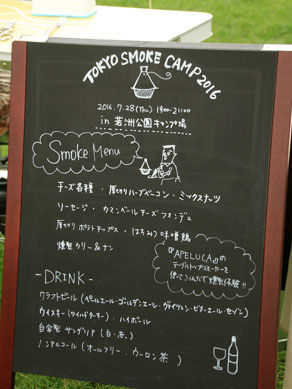 TOKYO SMOKE CAMP 2016
2016.7.28(Thu) 19:00-21:00
in 若洲公園キャンプ場
Smoke Menu
チーズ各種・厚切りハーブベーコン・ミックスナッツ
ソーセージ・カマンベールチーズフォンデュ
厚切りポテトチップス・はちみつ味噌鶏
燻製カリー&ナン
『APELUCA』の
テーブルトップスモーカーを
使ってみんなで燻製体験!!
-DRINK-
クラフトビール(ペールエール・ゴールデンエール・ヴァイツェン・ビターエール・セゾン)
ウイスキー(ワイルドターキー)・ハイボール
自家製サングリア(白・赤)
ノンアルコール(オールフリー・ウーロン茶)